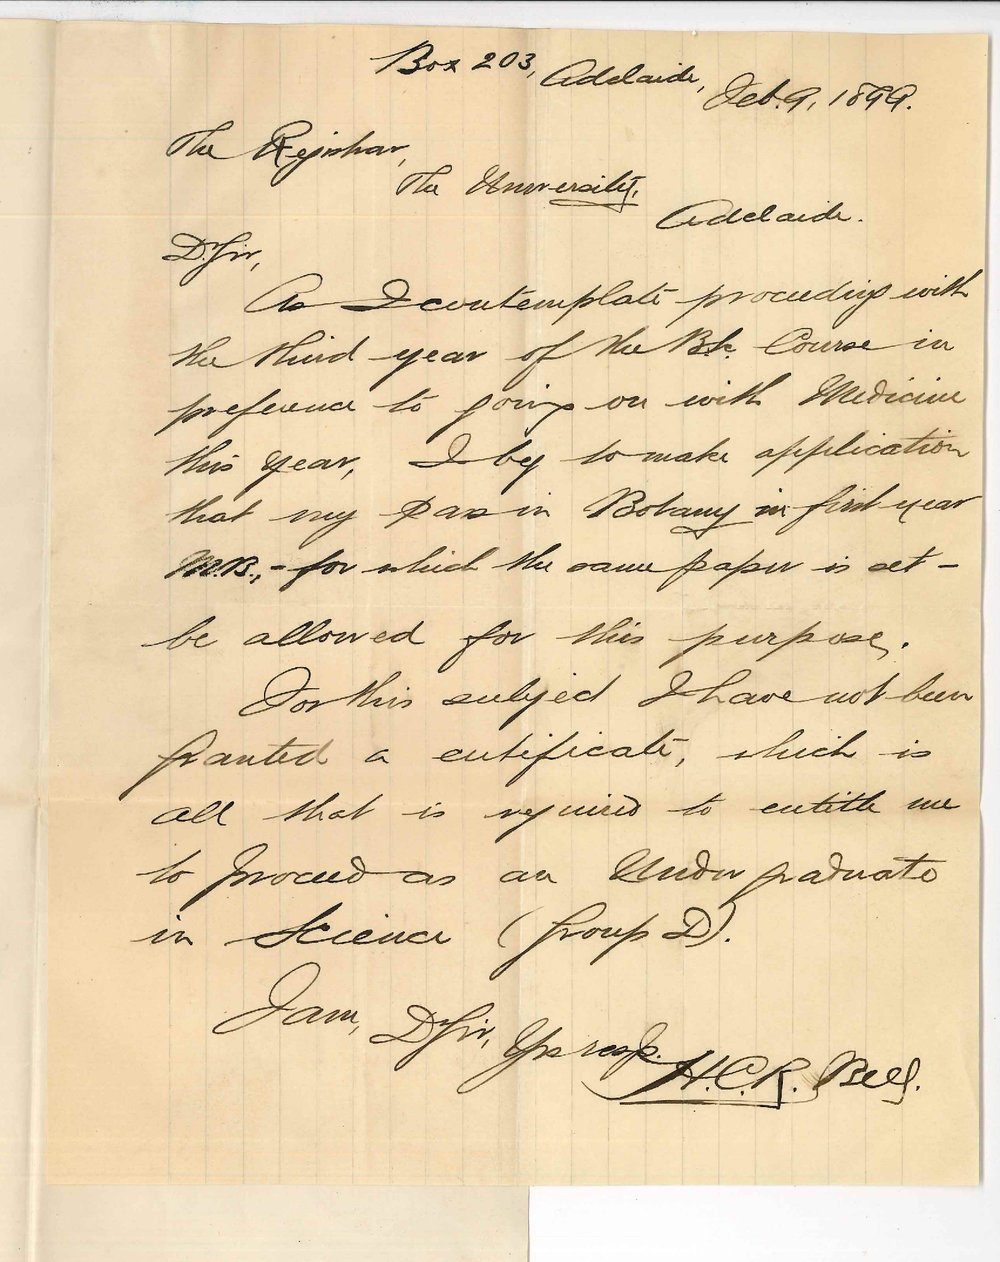 Box 203, Adelaide, Feb. 9, 1899.
The Registrar,
The University,
Adelaide.
Dr Sir,
As I contemplate proceeding with
the third year of the BSc. Course in
preference to going on with Medicine
this year, I beg to make application
that my pass in Botany in first year
M.B., - for which the same paper is set -
be allowed for this purpose.
For this subject I have not been
granted a certificate, which is
all that is required to entitle me
to proceed as an Undergraduate
in Science (Group D).
I am, Dr Sir, Yrs resp.
H.C.R. Bell.